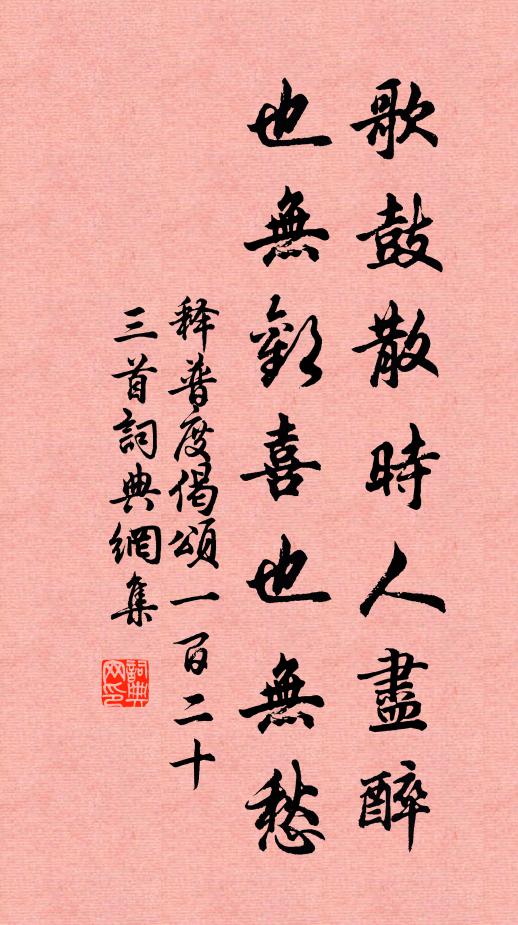 歌鼓散時人盡醉
也無歡喜也無愁
释普度偈頌一百二十
三首詞典網集
詞典
网印